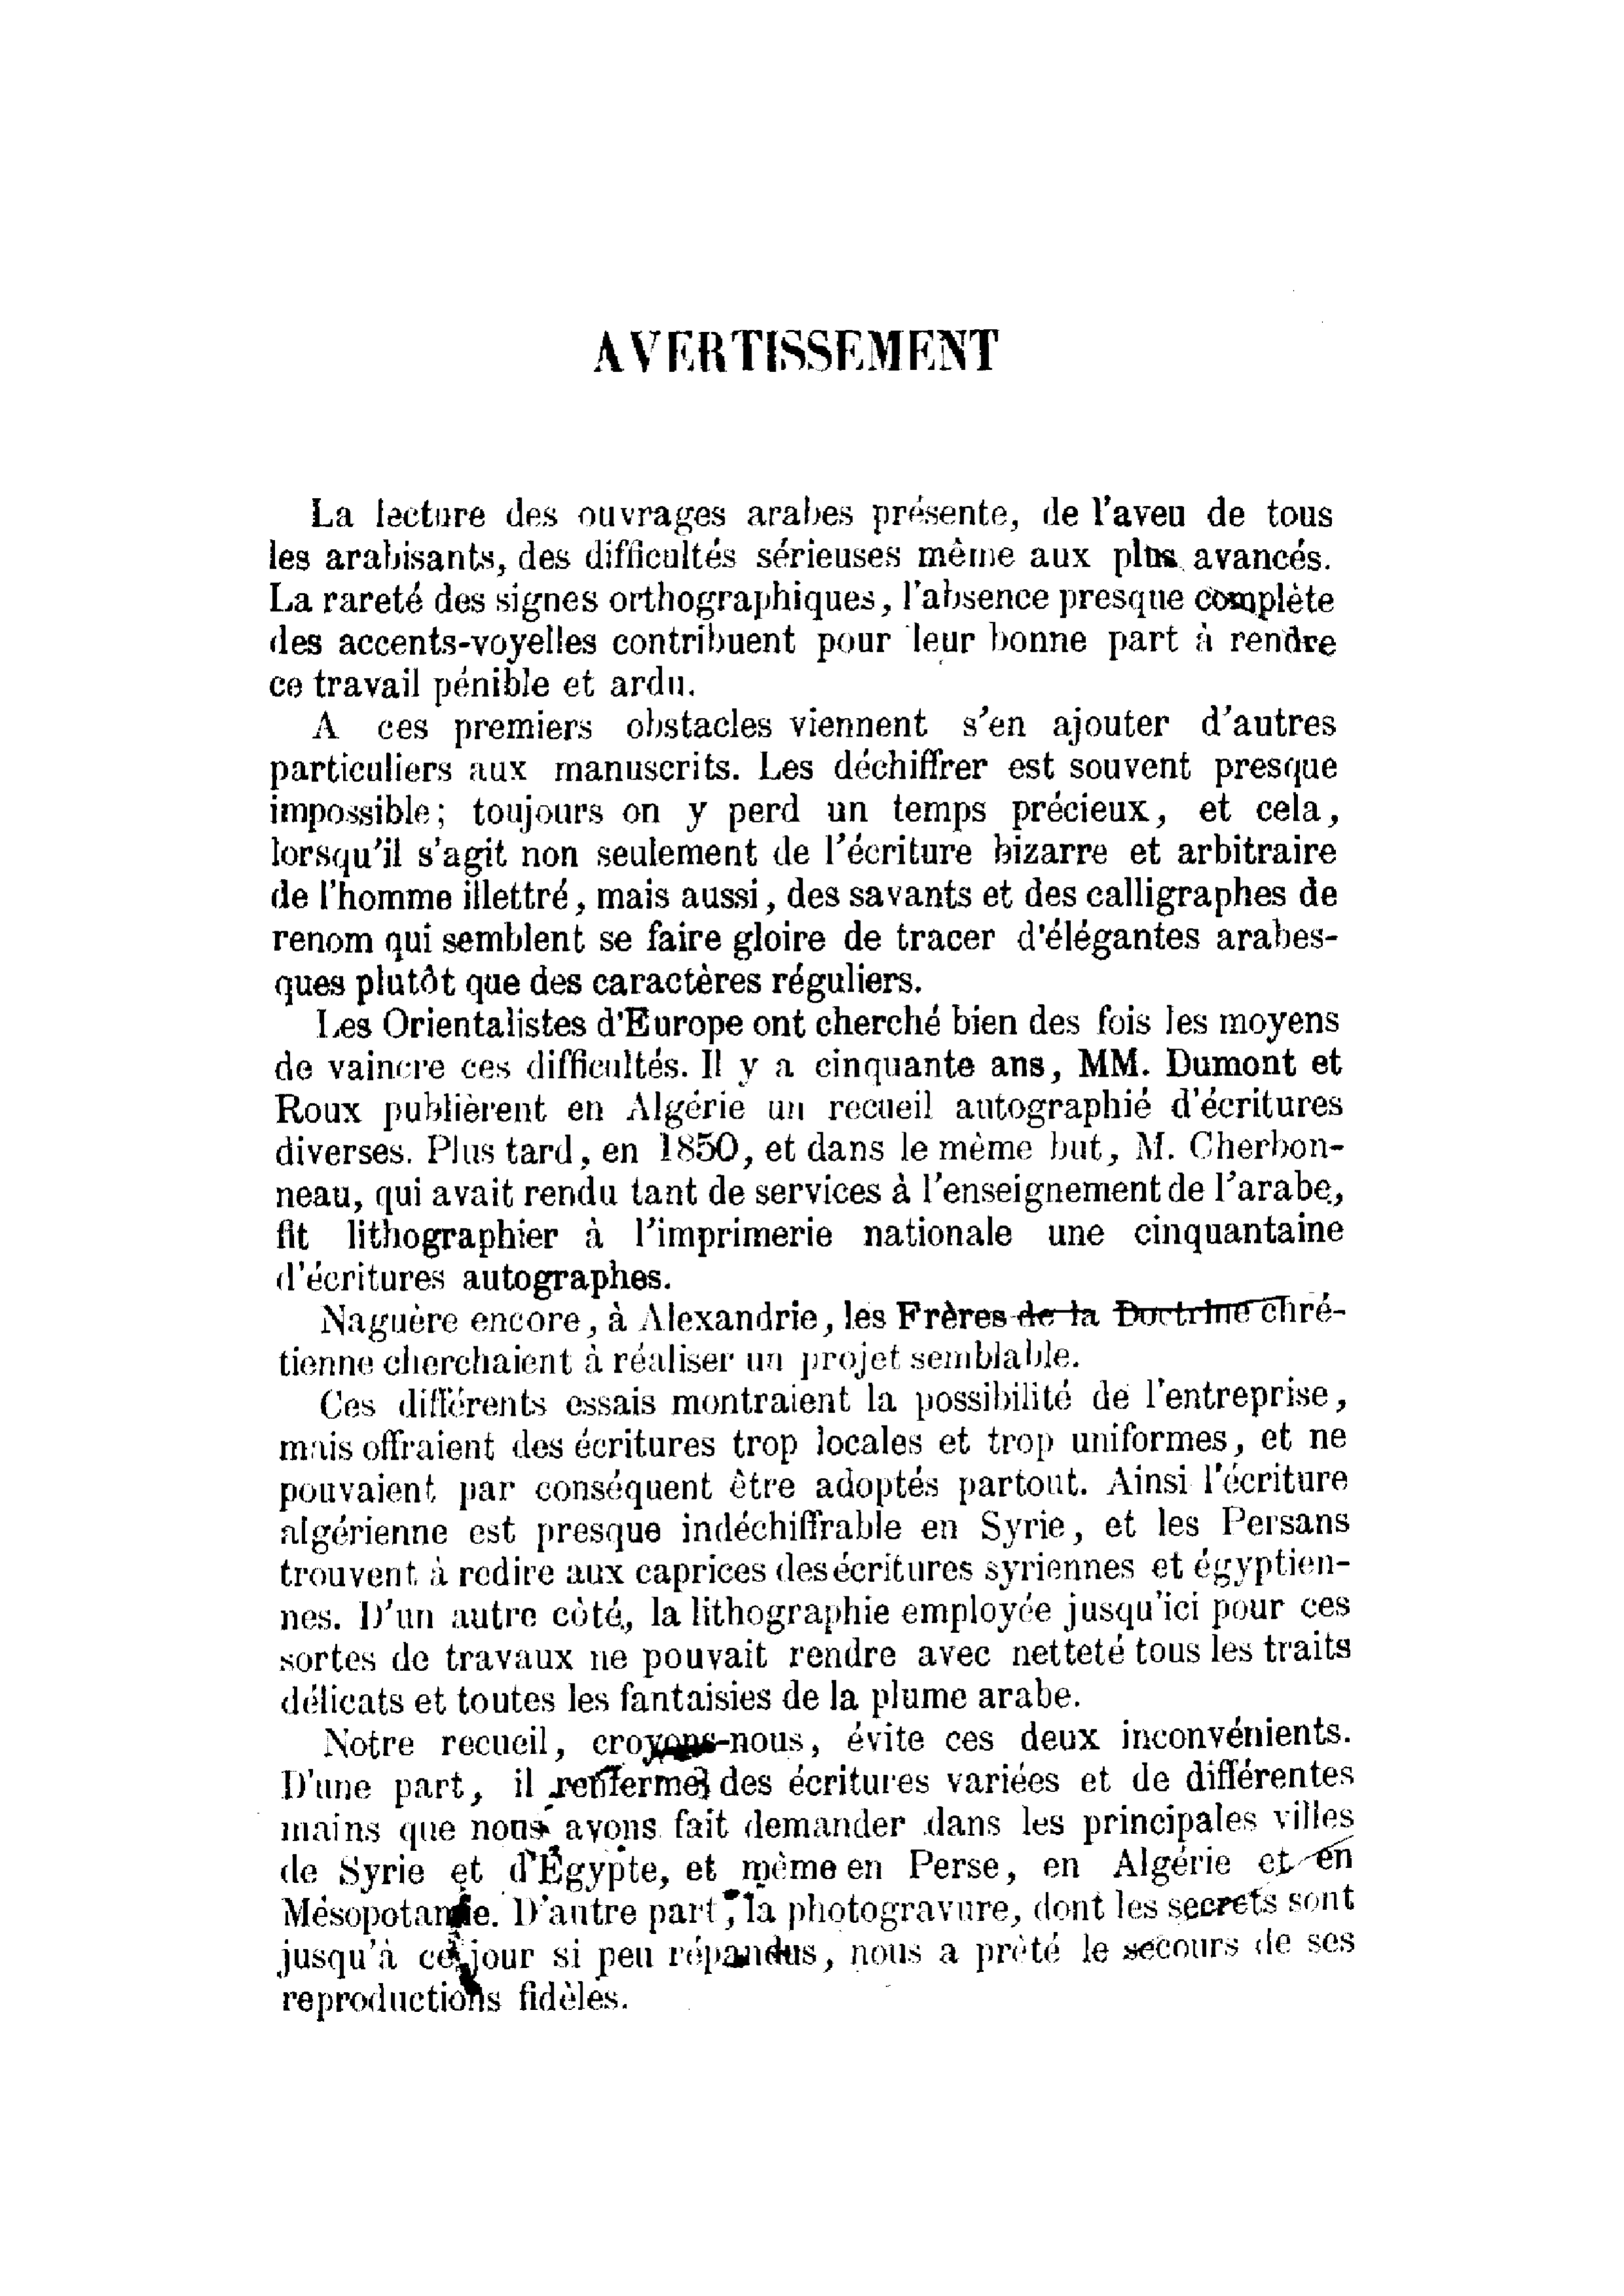 AVERTISSEMENT
La lecture des ouvrages arabes présente, de l'aveu de tous
les arabisants, des difficultés sérieuses même aux plus avancés.
La rareté des signes orthographiques, l'absence presque complète
des accents-voyelles contribuent pour leur bonne part à rendre
ce travail pénible et ardu.
A ces premiers obstacles viennent s'en ajouter d'autres
particuliers aux manuscrits. Les déchiffrer est souvent presque
impossible; toujours on y perd un temps précieux, et cela,
lorsqu'il s'agit non seulement de l'écriture bizarre et arbitraire
de l'homme illettré, mais aussi, des savants et des calligraphes de
renom qui semblent se faire gloire de tracer d'élégantes arabes-
ques plutôt que des caractères réguliers.
Les Orientalistes d'Europe ont cherché bien des fois les moyens
de vaincre ces difficultés. Il y a cinquante ans, MM. Dumont et
Roux publièrent en Algérie un recueil autographié d'écritures
diverses. Plus tard, en 1850, et dans le même but, M. Cherbon-
neau, qui avait rendu tant de services à l'enseignement de l'arabe,
fit lithographier à l'imprimerie nationale une cinquantaine
d'écritures autographes.
Naguère encore, à Alexandrie, les Frères de la Doctrine chré-
tienne cherchaient à réaliser un projet semblable.
Ces différents essais montraient la possibilité de l'entreprise,
mais offraient des écritures trop locales et trop uniformes, et ne
pouvaient par conséquent être adoptés partout. Ainsi l'écriture
algérienne est presque indéchiffrable en Syrie, et les Persans
trouvent à redire aux caprices des écritures syriennes et égyptien-
nes. D'un autre côté, la lithographie employée jusqu'ici pour ces
sortes de travaux ne pouvait rendre avec netteté tous les traits
délicats et toutes les fantaisies de la plume arabe.
Notre recueil, croyons-nous, évite ces deux inconvénients.
D'une part, il renferme des écritures variées et de différentes
mains que nous avons fait demander dans les principales villes
de Syrie et d'Égypte, et même en Perse, en Algérie et en
Mésopotamie. D'autre part, la photogravure, dont les secrets sont
jusqu'à ce jour si peu répandus, nous a prêté le secours de ses
reproductions fidèles.